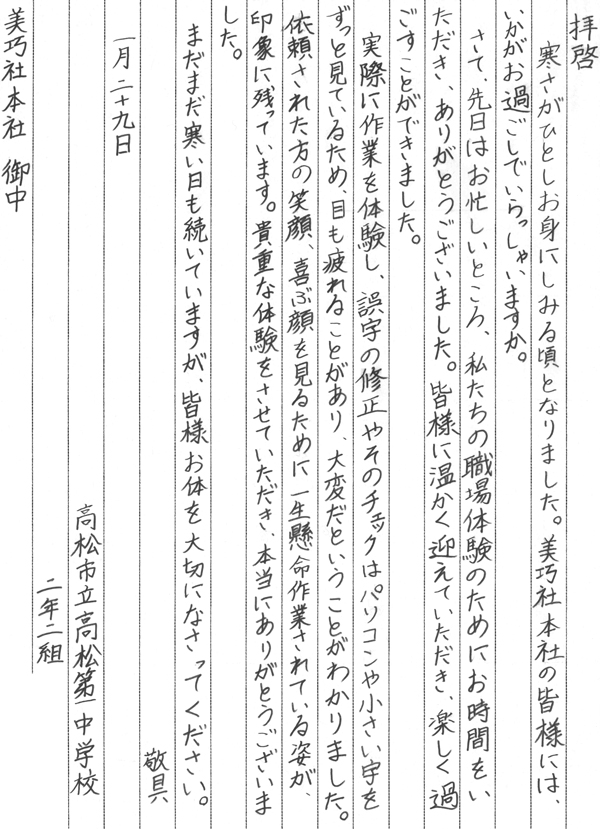 拝啓
寒さがひとしお身にしみる頃となりました。美巧社本社の皆様には、
いかがお過ごしでいらっしゃいますか。
さて、先日はお忙しいところ、私たちの職場体験のためにお時間をい
ただき、ありがとうございました。皆様に温かく迎えていただき、楽しく過
ごすことができました。
実際に作業を体験し、誤字の修正やそのチェックはパソコンや小さい字を
ずっと見ているため、目も疲れることがあり、大変だということがわかりました。
依頼された方の笑顔、喜ぶ顔を見るために一生懸命作業されている姿が、
印象に残っています。貴重な体験をさせていただき、本当にありがとうございま
した。
まだまだ寒い日も続いていますが、皆様お体を大切になさってください。
敬具
一月二十九日
高松市立高松第一中学校
二年二組
美巧社本社 御中